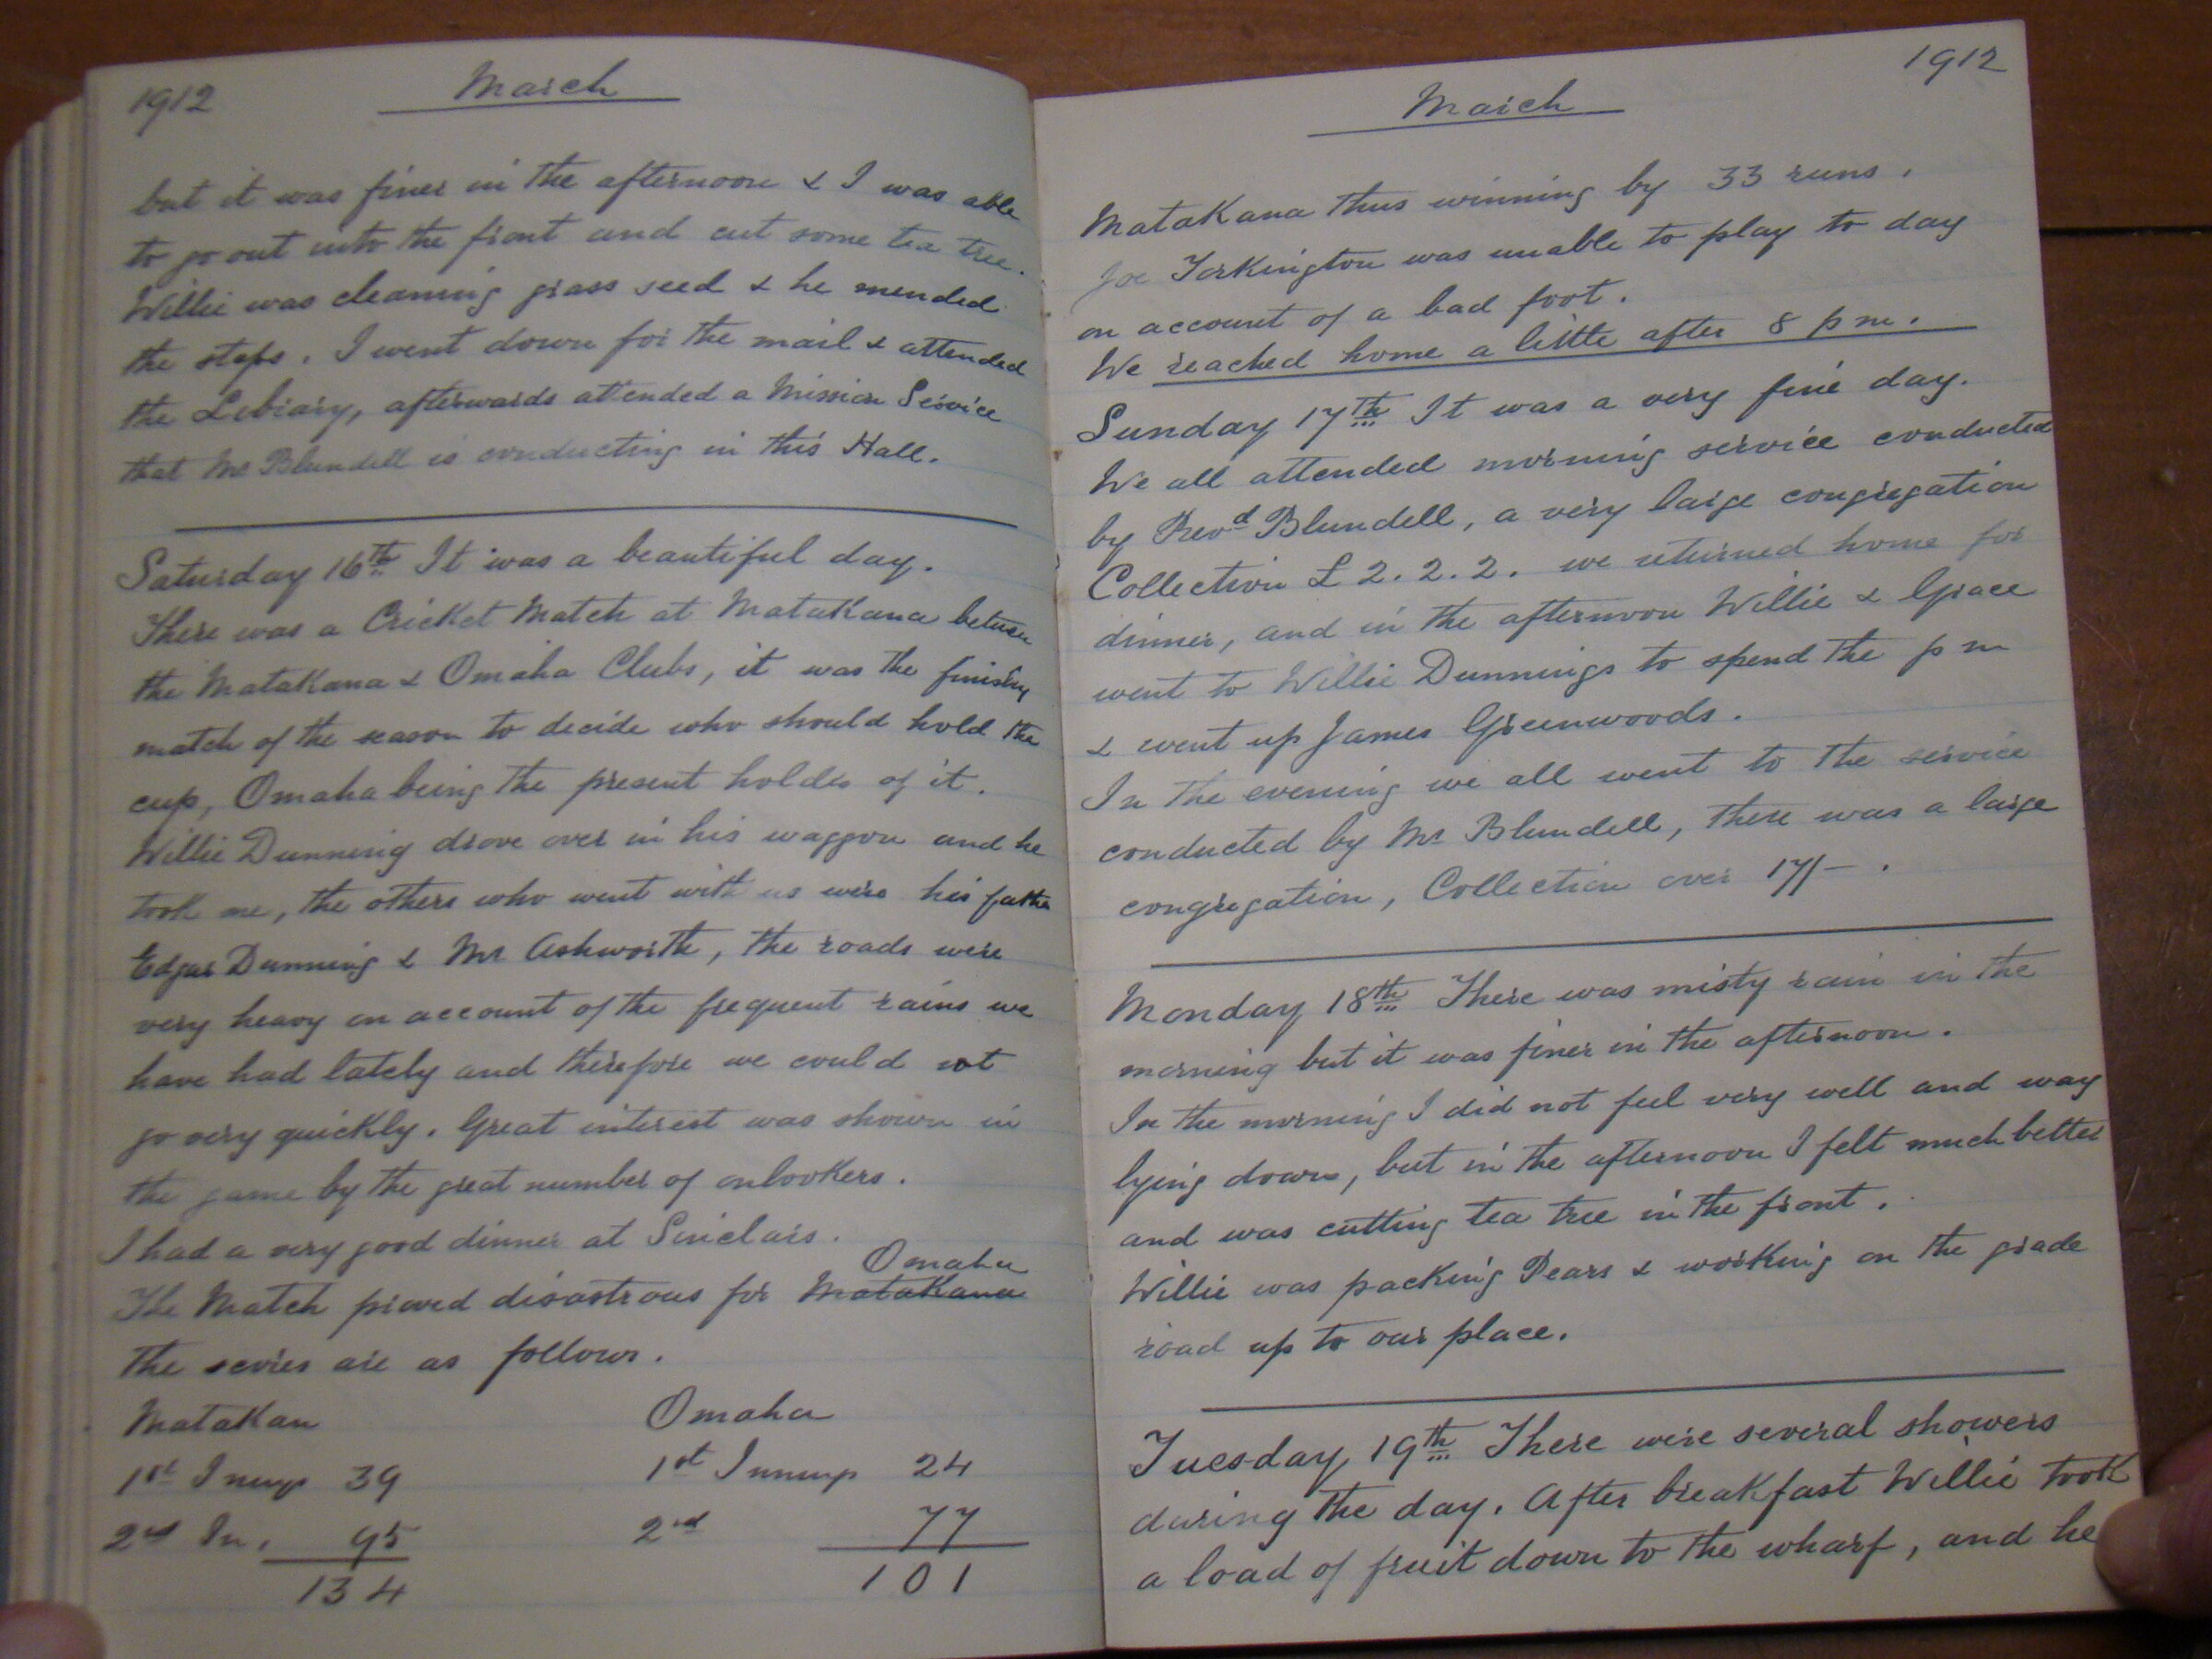 1912
March
but it was finer in the afternoon & I was able
to go out into the front and cut some tea tree.
Willie was cleaning grass seed & he mended
the steps. I went down for the mail & attended
the Library, afterwards attended a Mission Service
that Mr Blundell is conducting in this Hall.
Saturday 16th It was a beautiful day.
There was a Cricket Match at Matakana between
the Matakana & Omaha Clubs, it was the finishing
match of the season to decide who should hold the
cup, Omaha being the present holder of it.
Willie Dunning drove over in his waggon and he
took me, the others who went with us were his father
Edgar Dunning & Mr Ashworth, the roads were
very heavy on account of the frequent rains we
have had lately and therefore we could not
go very quickly. Great interest was shown in
the game by the great number of onlookers.
I had a very good dinner at Sinclairs.
Omaha
The Match proved disastrous for Matakana
the scores are as follows.
Matakan Omaha
1st Innings 39 1st Innings 24
2nd In. 95 2nd 77
134 101
1912
March
Matakana thus winning by 33 runs.
Joe Torkington was unable to play to day
on account of a bad foot.
We reached home a little after 8 pm.
Sunday 17th It was a very fine day.
We all attended morning service conducted
by Revd Blundell, a very large congregation
Collection £2.2.2. we returned home for
dinner, and in the afternoon Willie & Grace
went to Willie Dunnings to spend the pm
& went up James Greenwoods.
In the evening we all went to the service
conducted by Mr Blundell, there was a large
congregation, Collection over 17/-.
Monday 18th There was misty rain in the
morning but it was finer in the afternoon.
In the morning I did not feel very well and way
lying down, but in the afternoon I felt much better
and was cutting tea tree in the front.
Willie was packing Pears & working on the grade
road up to our place.
Tuesday 19th There were several showers
during the day. After breakfast Willie took
a load of fruit down to the wharf, and he